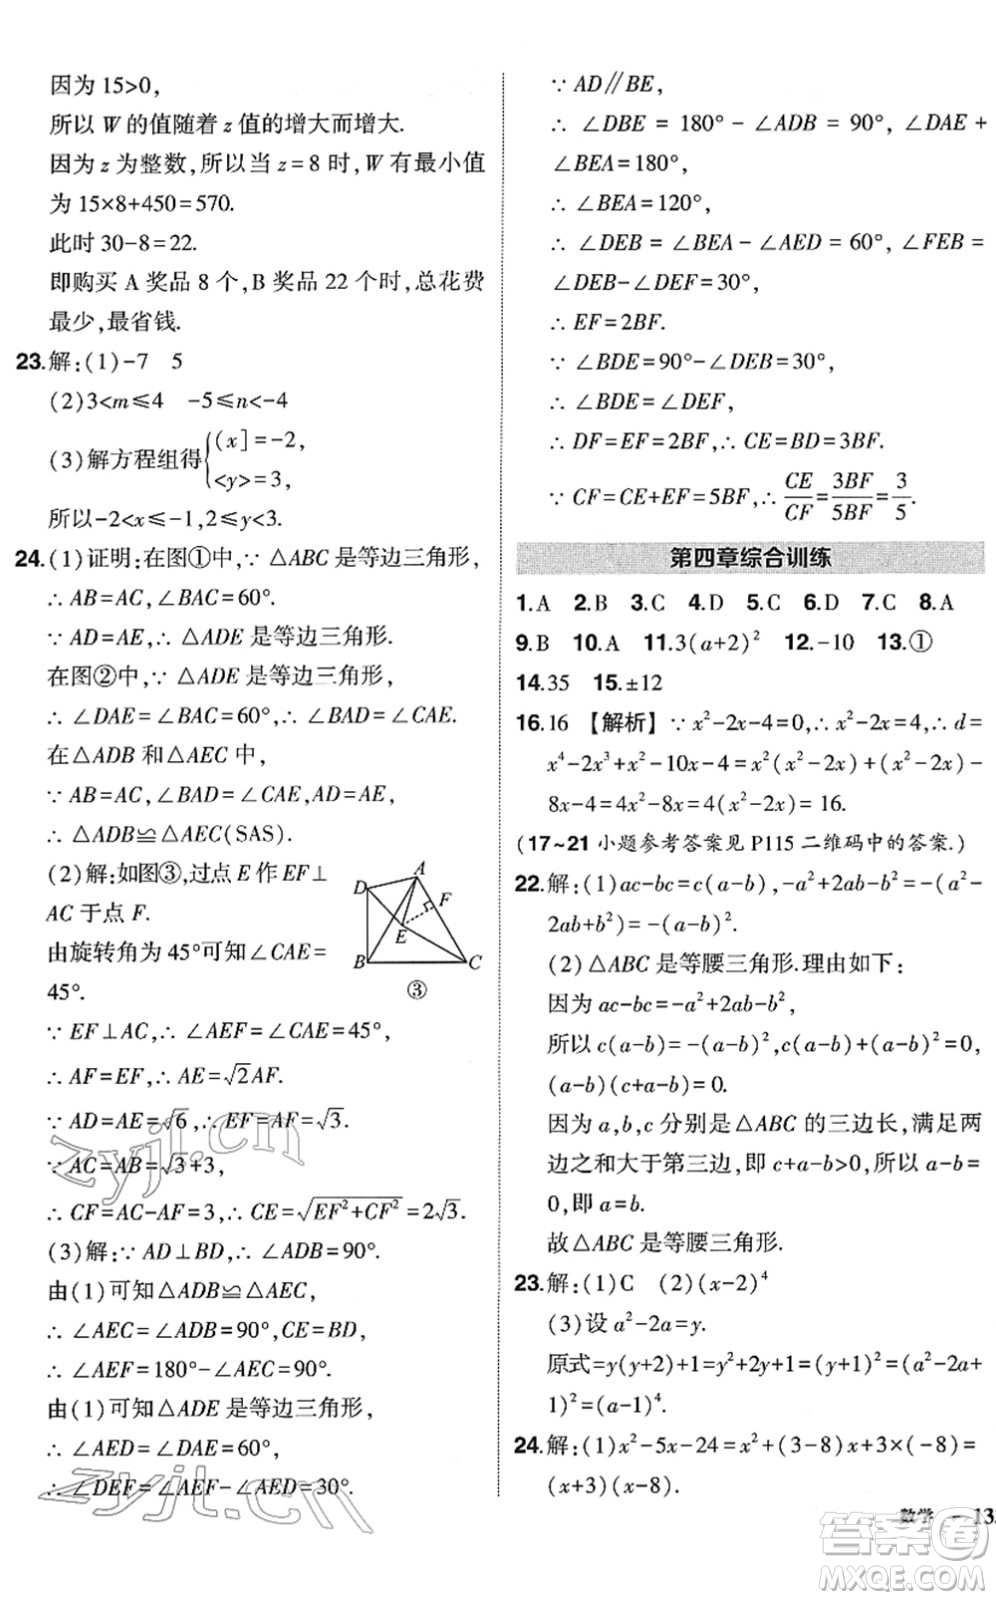 因为 15>0,
所以 W 的值随着 z 值的增大而增大.
因为 z 为整数,所以当 z=8 时,W 有最小值
为 15×8+450=570.
此时 30-8=22.
即购买 A 奖品 8 个,B 奖品 22 个时,总花费
最少,最省钱.
23.解:(1)-7 5
(2)3<m≤4 -5≤n<-4
(3)解方程组得{(x]=-2,
<y>=3,
所以-2<x≤-1,2≤y<3.
24.(1)证明:在图①中,∵ △ABC 是等边三角形,
∴ AB=AC,∠BAC=60°.
∵ AD=AE,∴ △ADE 是等边三角形.
在图②中,∵ △ADE 是等边三角形,
∴ ∠DAE=∠BAC=60°,∴ ∠BAD=∠CAE.
在△ADB 和△AEC 中,
∵ AB=AC,∠BAD=∠CAE,AD=AE,
∴ △ADB≌△AEC(SAS).
(2)解:如图③,过点 E 作 EF⊥
AC 于点 F.
由旋转角为 45°可知∠CAE=
45°.
A
D
F
E
B
C
③
∵ EF⊥AC,∴ ∠AEF=∠CAE=45°,
∴ AF=EF,∴ AE=√2AF.
∵ AD=AE=√6,∴ EF=AF=√3.
∵ AC=AB=√3+3,
∴ CF=AC-AF=3,∴ CE=√EF²+CF²=2√3.
(3)解:∵ AD⊥BD,∴ ∠ADB=90°.
由(1)可知△ADB≌△AEC,
∴ ∠AEC=∠ADB=90°,CE=BD,
∴ ∠AEF=180°-∠AEC=90°.
由(1)可知△ADE 是等边三角形,
∴ ∠AED=∠DAE=60°,
∴ ∠DEF=∠AEF-∠AED=30°.
∵ AD∥BE,
∴ ∠DBE=180°-∠ADB=90°,∠DAE+
∠BEA=180°,
∴ ∠BEA=120°,
∴ ∠DEB=∠BEA-∠AED=60°,∠FEB=
∠DEB-∠DEF=30°,
∴ EF=2BF.
∴ ∠BDE=90°-∠DEB=30°,
∴ ∠BDE=∠DEF,
∴ DF=EF=2BF,∴ CE=BD=3BF.
∵ CF=CE+EF=5BF,∴ CE/CF=3BF/5BF=3/5.
第四章综合训练
1.A 2.B 3.C 4.D 5.C 6.D 7.C 8.A
9.B 10.A 11.3(a+2)² 12.-10 13.①
14.35 15.±12
16.16 【解析】∵ x²-2x-4=0,∴ x²-2x=4,∴ d=
x⁴-2x³+x²-10x-4=x²(x²-2x)+(x²-2x)-
8x-4=4x²-8x=4(x²-2x)=16.
(17~21 小题参考答案见 P115 二维码中的答案.)
22.解:(1)ac-bc=c(a-b),-a²+2ab-b²=-(a²-
2ab+b²)=-(a-b)².
(2)△ABC 是等腰三角形.理由如下:
因为 ac-bc=-a²+2ab-b²,
所以 c(a-b)=-(a-b)²,c(a-b)+(a-b)²=0,
(a-b)(c+a-b)=0.
因为 a,b,c 分别是△ABC 的三边长,满足两
边之和大于第三边,即 c+a-b>0,所以 a-b=
0,即 a=b.
故△ABC 是等腰三角形.
23.解:(1)C (2)(x-2)⁴
(3)设 a²-2a=y.
原式=y(y+2)+1=y²+2y+1=(y+1)²=(a²-2a+
1)²=(a-1)⁴.
24.解:(1)x²-5x-24=x²+(3-8)x+3×(-8)=
(x+3)(x-8).
数学 - 13
zyjl.cn
zyjl.cn
答案圈
MXQE.COM